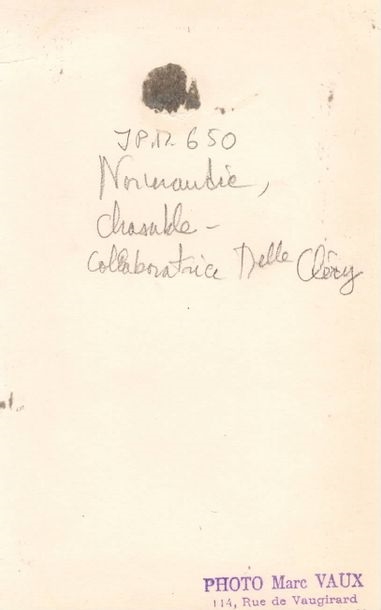 J.P.M. 650
Normandie,
chasuble -
collaboratrice Delle Cléry
PHOTO Marc VAUX
114, Rue de Vaugirard